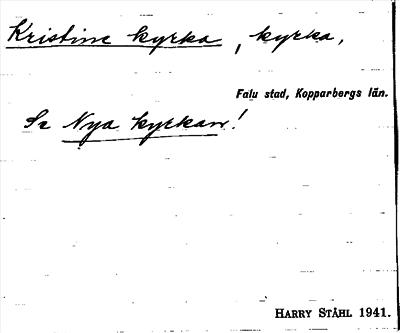 Kristine kyrka, kyrka,
Falu stad, Kopparbergs län.
Se Nya kyrkan!
HARRY STÅHL 1941.